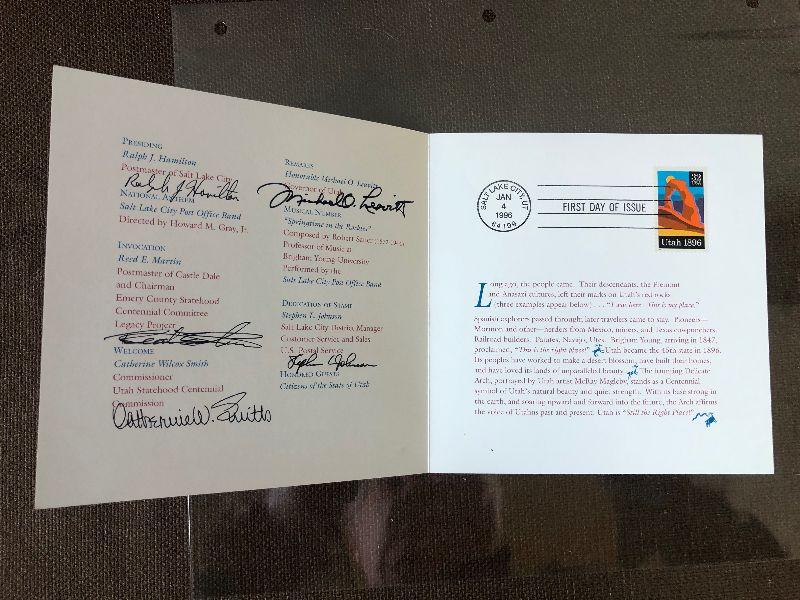 PRESIDING
Ralph J. Hamilton
Postmaster of Salt Lake City
Ralph J Hamilton
NATIONAL ANTHEM
Salt Lake City Post Office Band
Directed by Howard M. Gray, Jr.
INVOCATION
Reed E. Martin
Postmaster of Castle Dale
and Chairman
Emery County Statehood
Centennial Committee
Legacy Project
WELCOME
Catherine Wilcox Smith
Commissioner
Utah Statehood Centennial
Commission
Catherine W. Smith
REMARKS
Honorable Michael O. Leavitt
Governor of Utah
Michael O. Leavitt
MUSICAL NUMBER
"Springtime in the Rockies"
Composed by Robert Sauer
Professor of Music at
Brigham Young University
Performed by the
Salt Lake City Post Office Band
DEDICATION OF STAMP
Stephen L. Johnson
Salt Lake City District Manager
Customer Service and Sales
U.S. Postal Service
HONORED GUESTS
Citizens of the State of Utah
SALT LAKE CITY, UT
JAN
4
1996
84199
FIRST DAY OF ISSUE
32
USA
Utah 1896
Long ago, the people came. Their descendants, the Fremont
and Anasazi cultures, left their marks on Utah's red rocks
(three examples appear below) . . . "I was here. This is my place."
Spanish explorers passed through; later travelers came to stay. Pioneers—
Mormon and other—herders from Mexico, miners, and Texas cowpunchers.
Railroad builders. Paiutes, Navajo, Utes. Brigham Young, arriving in 1847,
proclaimed, "This is the right place!" Utah became the 45th state in 1896.
Its peoples have worked to make a desert blossom, have built their homes,
and have loved its lands of unparalleled beauty. The stunning Delicate
Arch, portrayed by Utah artist McRay Magleby, stands as a Centennial
symbol of Utah's natural beauty and quiet strength. With its base strong in
the earth, and soaring upward and forward into the future, the Arch affirms
the voice of Utahns past and present: Utah is "Still the Right Place!"